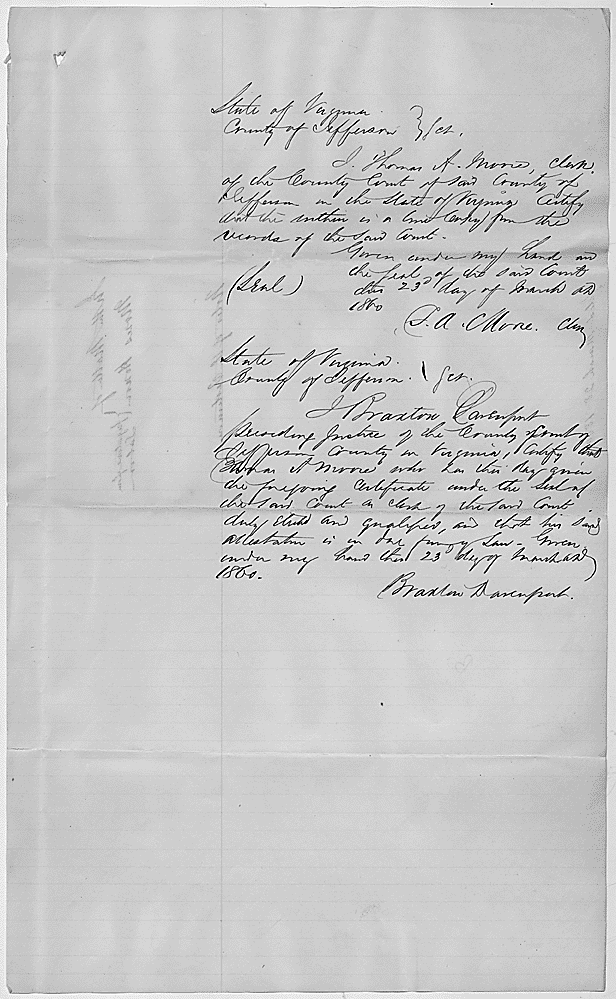 State of Virginia.
County of Jefferson } Sct.
I, Thomas A. Moore, clerk
of the County Court of said County of
Jefferson in the State of Virginia Certify
that the within is a true Copy from the
records of the said Court.
Given under my hand and
the seal of the said Court
this 23d day of March AD
1860
(Seal)
T. A. Moore. Clerk
State of Virginia.
County of Jefferson. } Sct.
I Braxton Davenport
presiding Justice of the County Court of
Jefferson County in Virginia, Certify that
Thomas A Moore who has this day given
the foregoing Certificate under the Seal of
the said Court is clerk of the said Court
duly elected and qualified, and that his said
attestation is in due form of Law - Given
under my hand this 23d day of March AD
1860.
Braxton Davenport.